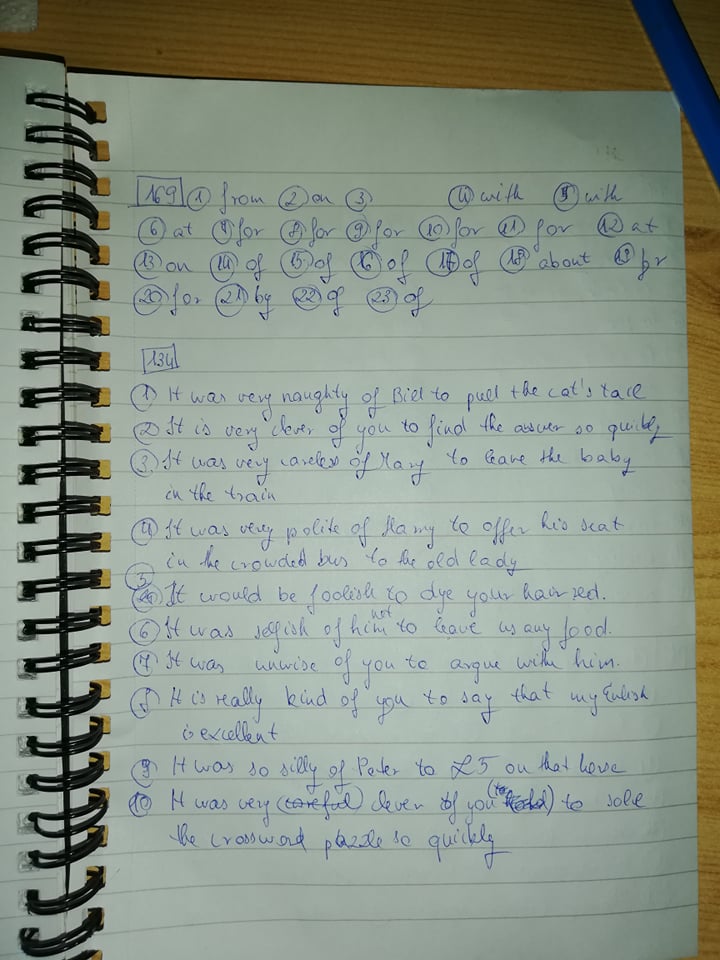 169 1 from 2 on 3 4 with 5 with
6 at 7 for 8 for 9 for 10 for 11 for 12 at
13 on 14 of 15 of 16 of 17 of 18 about 19 for
20 for 21 by 22 of 23 of
134
1 It was very naughty of Bill to pull the cat's tail
2 It is very clever of you to find the answer so quickly
3 It was very careless of Mary to leave the baby
in the train
4 It was very polite of Harry to offer his seat
in the crowded bus to the old lady
5 It would be foolish to dye your hair red.
6 It was selfish of him not to leave us any food.
7 It was unwise of you to argue with him.
8 It is really kind of you to say that my Enlish
is excellent
9 It was so silly of Peter to £5 on that horse
10 It was very (careful) clever of you (to) to solve
the crossword puzzle so quickly